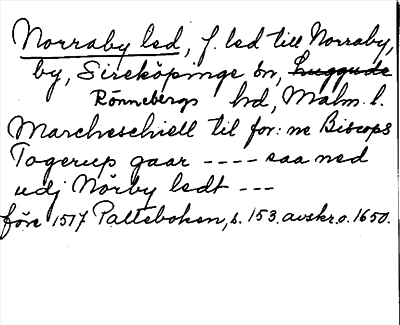 Norraby led, f. led till Norraby,
by, Sireköpinge sn, Luggude
Rönnebergs hd, Malm. l.
Marcheschiell til for: ne Biscops
Togerup gaar ---- saa ned
udj Nörby ledt ---
före 1517 Palteboken, s. 153. avskr. o. 1650.